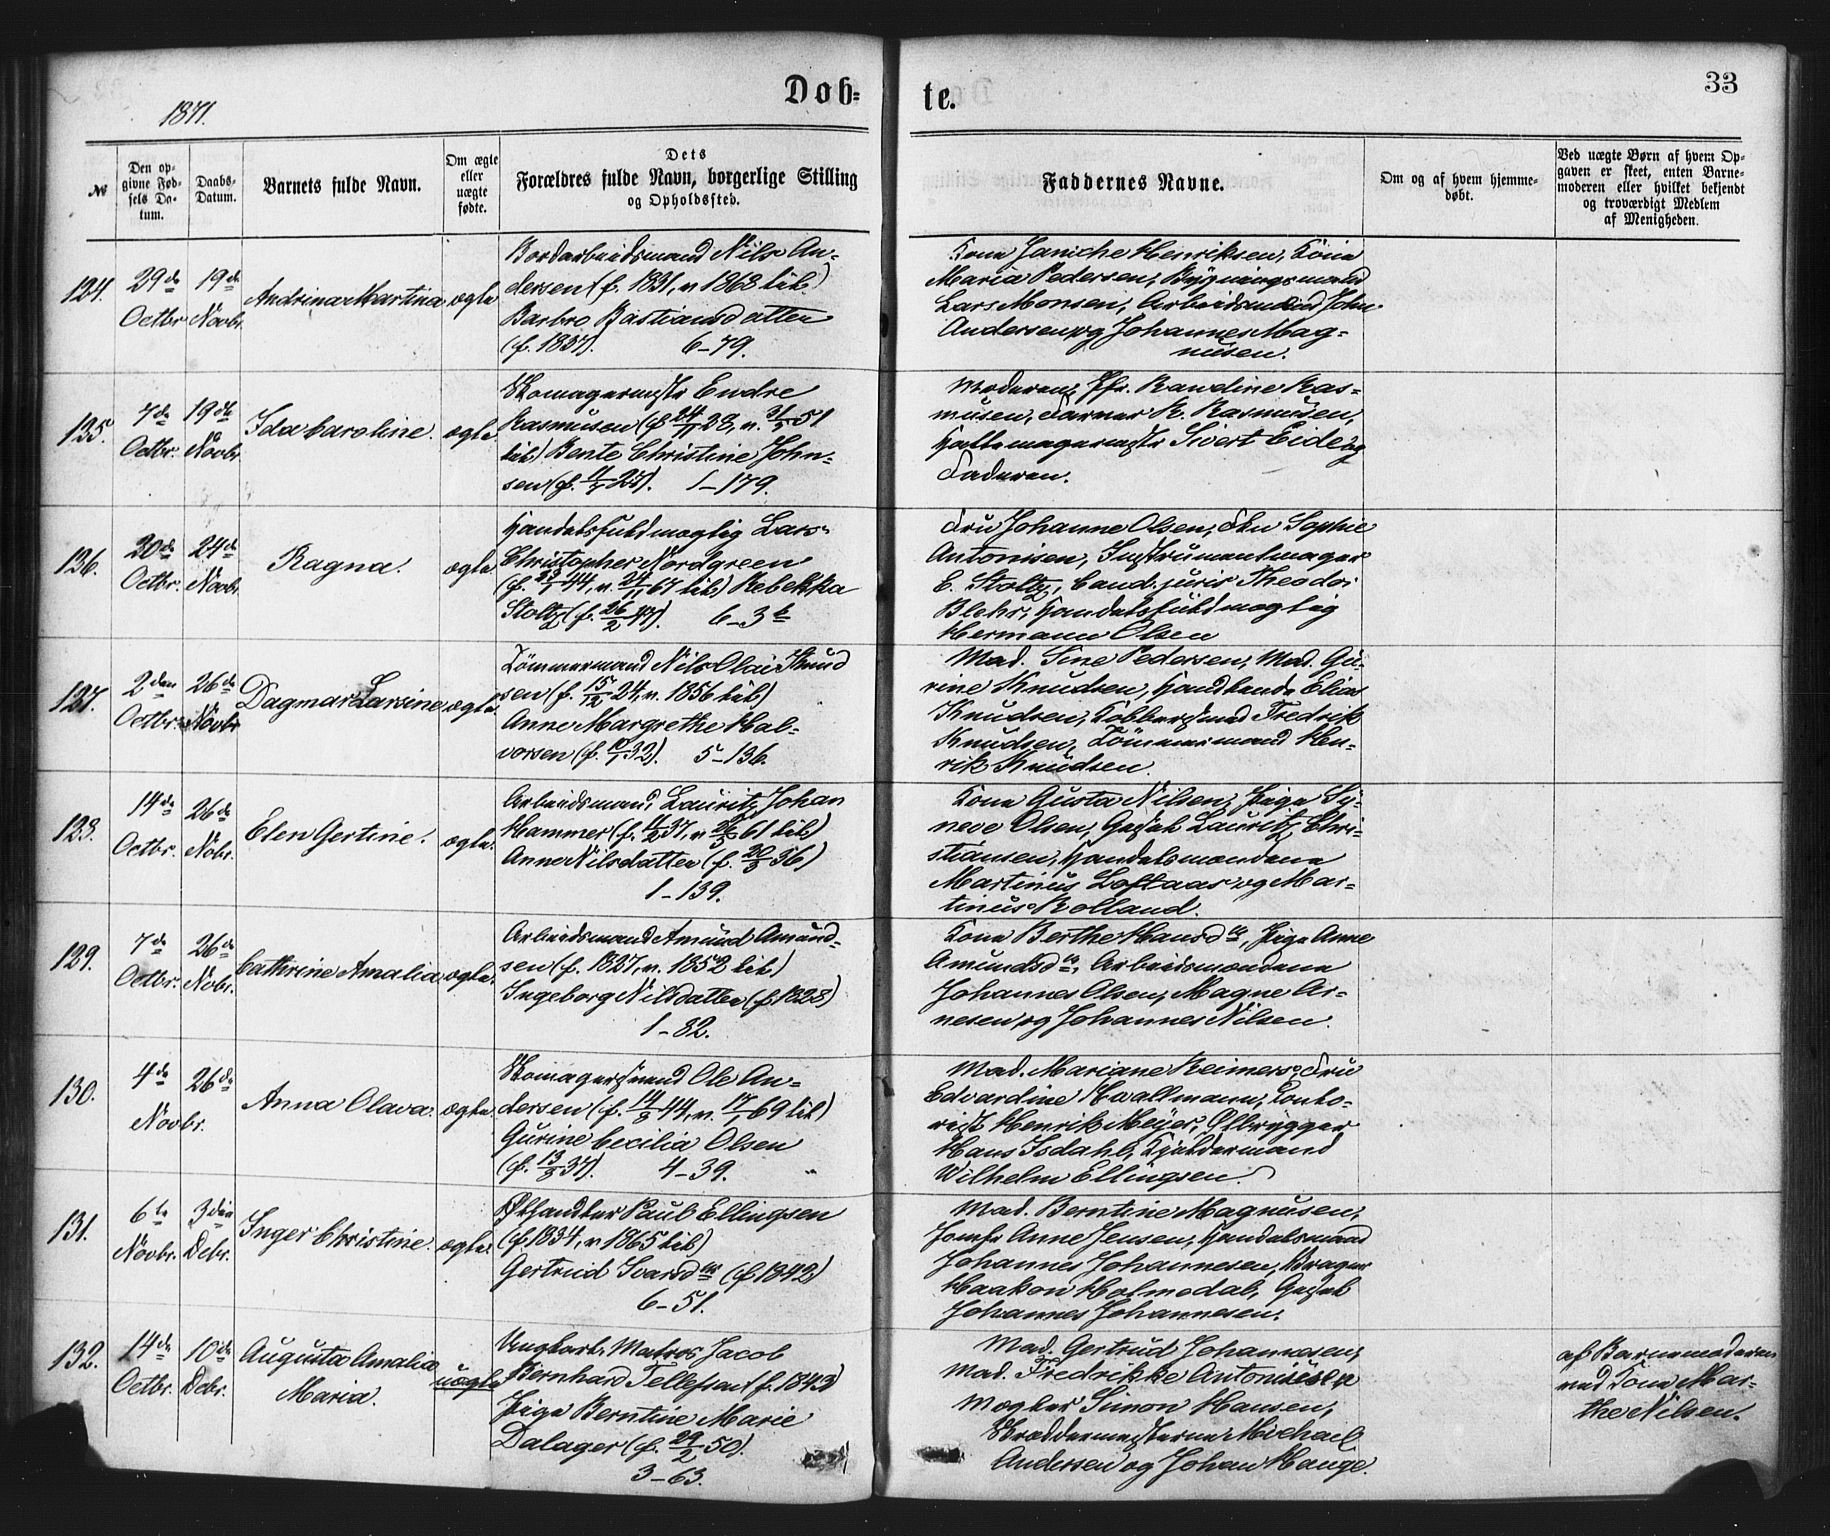 1871.
Døb=
te.
33
№
Den op=
givne Fød=
sels Da=
tum.
Daabs=
Datum.
Barnets fulde Navn.
Om ægte
eller
uægte
fødte.
Dets
Forældres fulde Navn, borgerlige Stilling
og Opholdssted.
Faddernes Navne.
Om og af hvem hjemme=
døbt.
Ved uægte Børn af hvem Op=
gaven er skeet, enten Barne=
moderen eller hvilket bekjendt
og troværdigt Medlem
af Menigheden.
124.
29de
Octbr.
19de
Novbr.
Andrina Martina
ægte
Bordarbeidsmand Nils An-
dersen (f. 1831, v. 1868 till)
Barbro Bastiansdatter
(f. 1837). 6-79.
Kone Janiche Henriksen, Kone
Maria Pedersen, Bygningsmand
Lars Monsen, Arbeidsmænd John
Andersen og Johannes Mag-
nusen.
125.
7de
Octbr.
19de
Novbr.
Ida Caroline.
ægte.
Skomagermstr Endre
Rasmusen (f. 24/11 28, v. 31/5 51
till) Bente Christine John-
sen (f. 11/5 25). 1-179.
Moderen, Jfr. Randine Ras-
musen, Farver R. Rasmusen,
Hattemagermstr Sivert Eide og
Faderen.
126.
30de
Octbr.
24de
Novbr.
Ragna.
ægte
Handelsfuldmægtig Lars
Christopher Nordgreen
44, v. 67 till) Rebekka
Stoltz (f. 26/2 47). 6-3b
Fru Johanne Olsen, Frk Sophie
Antonisen, Instrumentmager
C. Stoltz, Cand. juris Theodor
Blehr, Handelsfuldmægtig
Hermann Olsen
127.
2den
Octbr.
26de
Novbr
Dagmar Larsine
ægte.
Tømmermand Nils Olai Knud
sen (f. 15/12 24, v. 1856 till)
Anne Margrethe Hal-
vorsen (f. 32). 5-136.
Mad. Sine Pedersen, Mad. Gu-
rine Knudsen, Handlende Elias
Knudsen, Kobbersmed Fredrik
Knudsen, Tømmermand Hen-
rik Knudsen.
128.
14de
Octbr.
26de
Nobr.
Elen Gertine.
ægte.
Arbeidsmand, Lauritz Johan
Hammer (f. 37, v. 61 till)
Anne Nilsdatter (f. 20/3 36)
1-139.
Kone Gusta Nilsen, Pige Sy-
neve Olsen, Gesel Lauritz Chri-
stiansen, Handelsmændene
Martinus Loftaas og Mar-
tinus Rolland.
129.
7de
Octbr.
26de
Nvbr.
Cathrine Amalia
ægte.
Arbeidsmand Amund Amund-
sen (f. 1827, v. 1852 till)
Ingeborg Nilsdatter (f 1828)
1-82.
Kone Berthe Hansdtr, Pige Anne
Amundsdtr, Arbeidsmændene
Johannes Olsen, Magne Ar-
nesen og Johannes Nilsen.
130.
4de
Novbr.
26de
Anna Olava.
ægte.
Skomagersvend Ole An-
dersen (f. 14/3 44, v. 17/1 69 till)
Gurine Cecilia Olsen
(f. 13/3 37). 4-39.
Mad. Mariane Reimers, Fru
Edvardine Kwallmann, Conto-
rist Henrik Meyer, Ølbrygger
Hans Isdahl, Kjøldermand
Wilhelm Ellingsen.
131.
6te
Novbr.
3die
Debr.
Inger Christine.
ægte.
Ølhandler Paul Ellingsen
(f 1834, v. 1865 till)
Gertrud Ivarsdtr (f 1842)
6-51.
Mad. Berntine Magnusen,
Jomfr Anne Jensen, Handelsmand
Johannes Johannesen, Brager
Haakon Holmedal, Gesel
Johannes Johannesen.
132.
14de
Octbr.
10de
Debr.
Augusta Amalia
Maria.
uægte
Ungkarl, Matros Jacob
Bernhard Tellefsen (f. 1843)
Pige Berntine Marie
Dalager (f. 29/2 50).
3-63.
Mad. Gertrud Johannesen,
Mad. Fredrikke Antonisen
Vægter Simon Hansen,
Skræddermesterne Michael
Andersen og Johan Hauge.
af Barnemoderen
ved Kone Mar-
the Nilsen.